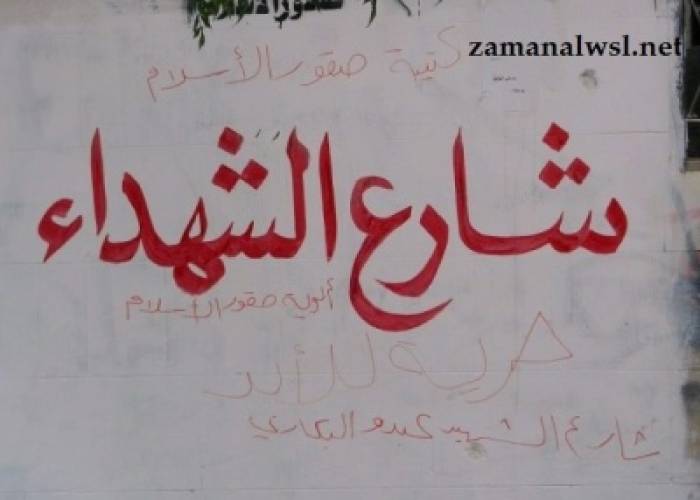 zamanalwsl.net
كتيبة صقور الأسلام
شارع الشهداء
ألوية صقور الأسلام
حرية للأبد
شارع الشهيد عبدو البخاري